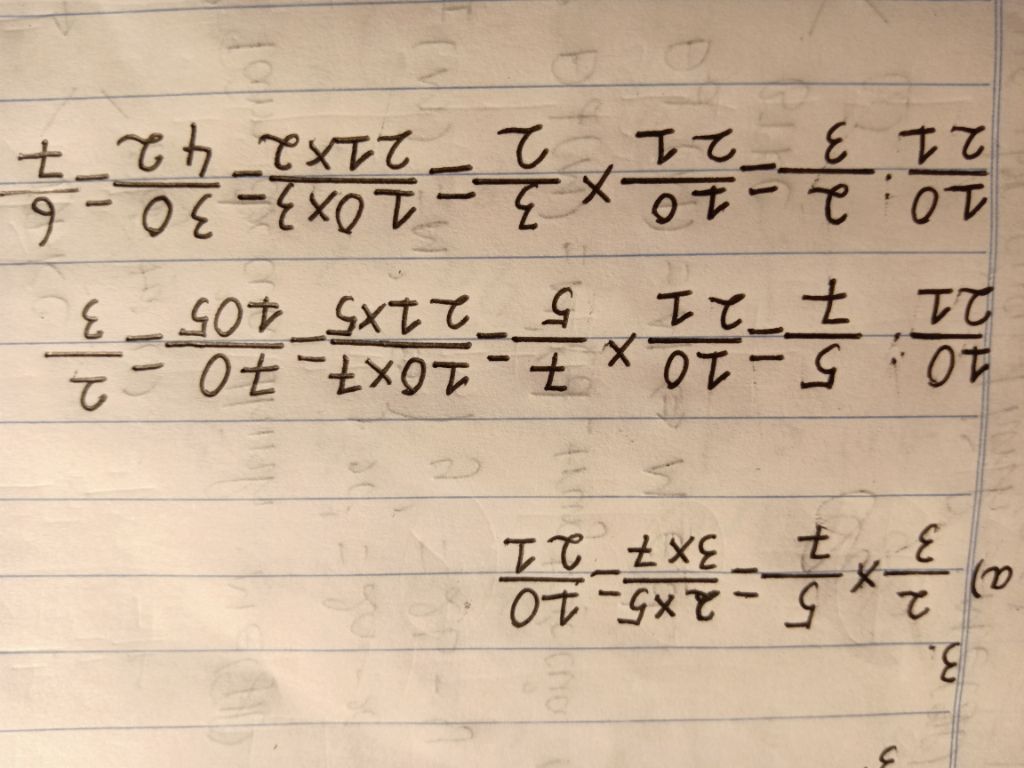 3.
a) 2/3 x 5/7 = 2x5/3x7 = 10/21
10/21 : 5/7 = 10/21 x 7/5 = 10x7/21x5 = 70/105 = 2/3
10/21 : 2/3 = 10/21 x 3/2 = 10x3/21x2 = 30/42 = 5/7